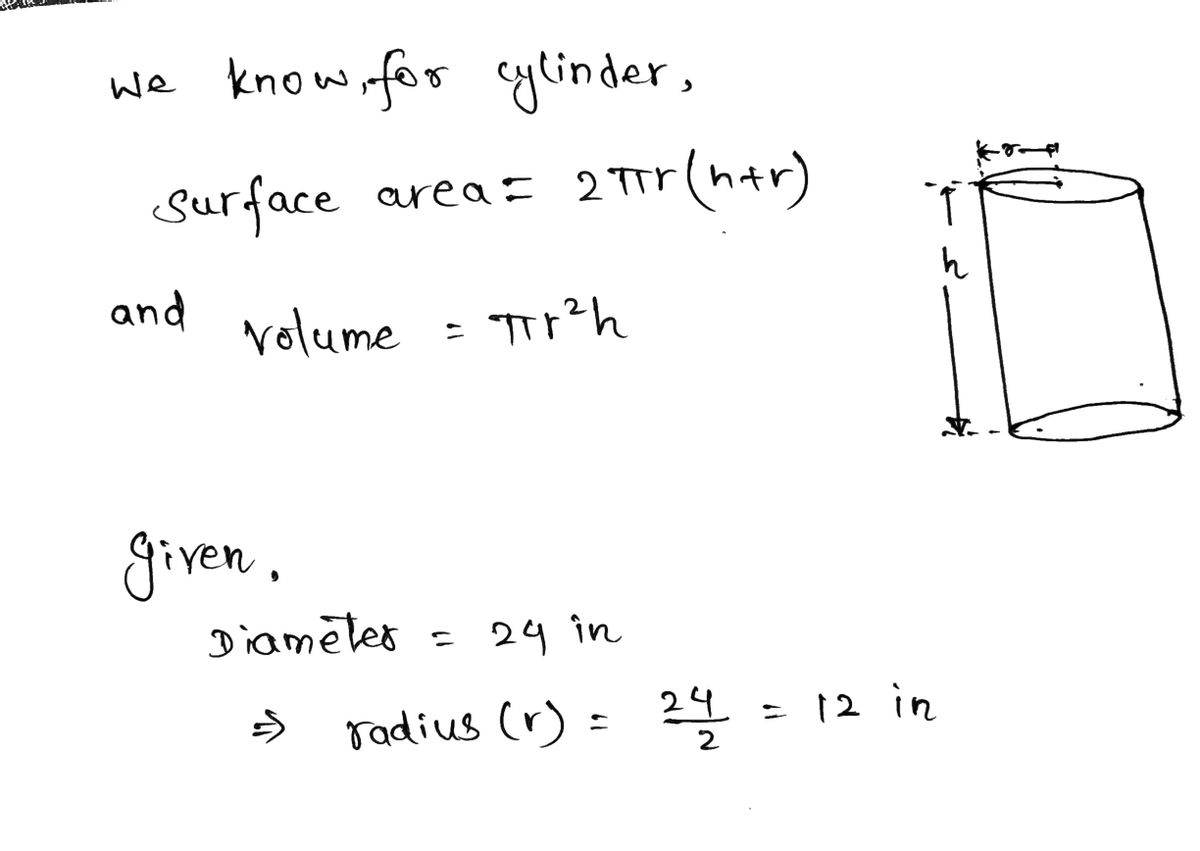 We know, for cylinder,
surface area = 2πr(h+r)
and volume = πr²h
r
h
given,
Diameter = 24 in
⇒ radius (r) = 24/2 = 12 in